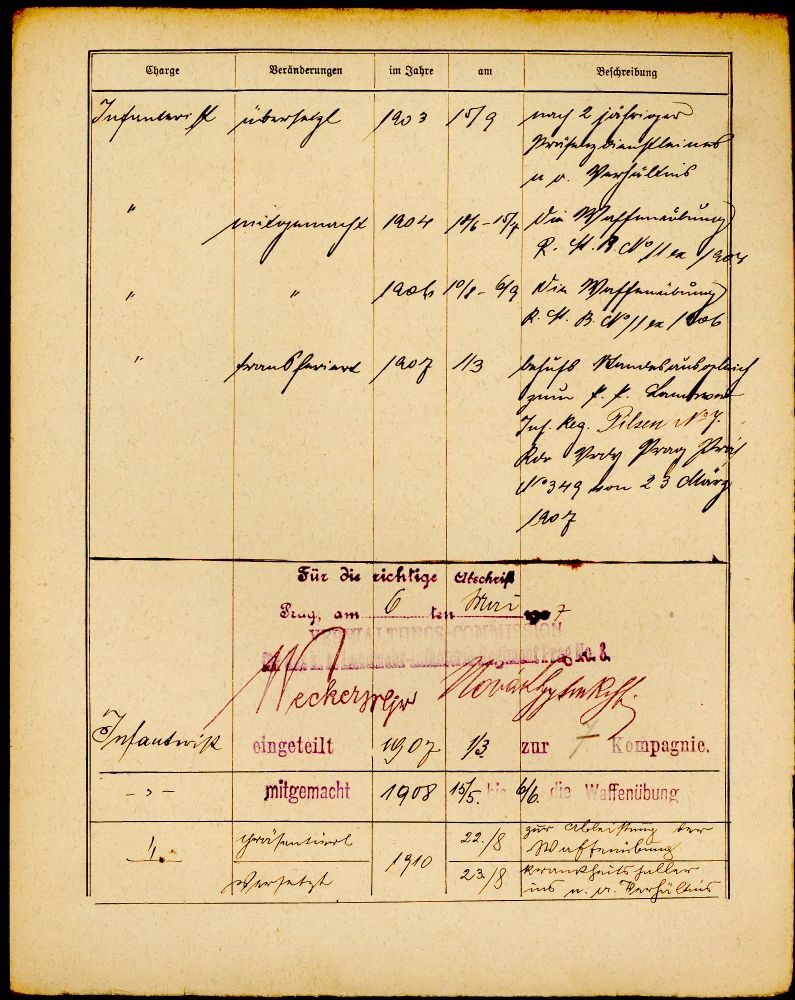 Charge Veränderungen im Jahre am Beschreibung
Infanterist übersetzt 1903 15/9 nach 2 jähriger
Präsenzdienstleistung
n. a. Verhältnis
" mitgemacht 1904 18/6 - 15/7 die Waffenübung
R. St. B. No 11 ex 1904
" " 1906 10/8 - 6/9 die Waffenübung
R. St. B. No 11 ex 1906
" transferiert 1907 1/3 behufs Standesausgleich
zum k. k. Landwehr
Inf. Reg. Pilsen No 7.
Prag Präs
No 349 von 23 März
1907
Für die richtige Abschrift
Prag, am 6 ten Mai 1907
VERWALTUNGS-COMMISSION
des k. k. Landwehr-Infanterie-Regiment Prag No. 8.
Infanterist eingeteilt 1907 1/3 zur 7 Kompagnie.
- " - mitgemacht 1908 15/5. bis 6/6. die Waffenübung
präsentiert 1910 22./8 zur Ableistung der
Waffenübung
versetzt 23./8 krankheitshalber
ins n. a. Verhältnis